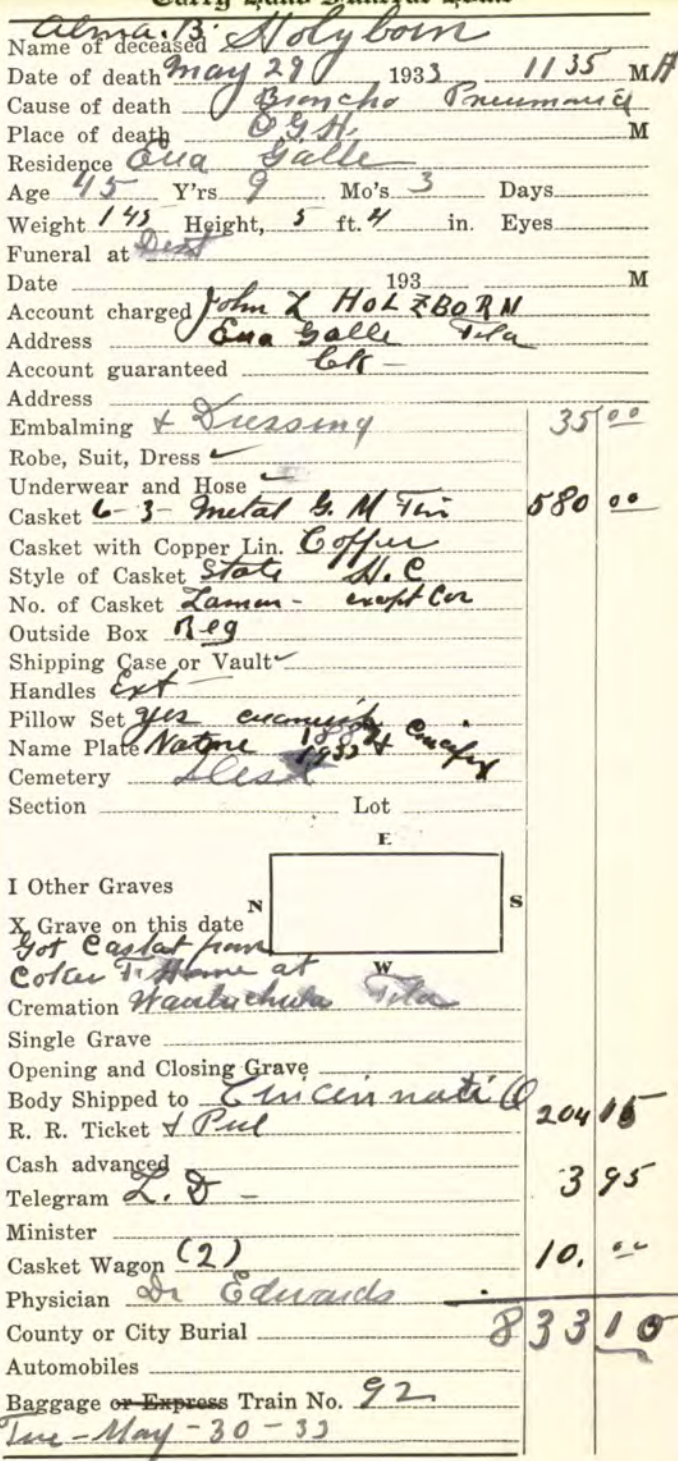 Name of deceased Alma. B. Holyborn
Date of death May 29 1933 11 35 M A
Cause of death Broncho Pneumonia
Place of death O G H. M
Residence Eua Galle
Age 45 Y'rs 9 Mo's 3 Days
Weight 145 Height, 5 ft. 4 in. Eyes
Funeral at
Date 193 M
Account charged John L HOLZBORN
Address Eua Galle Fla
Account guaranteed
Address
Embalming + Dressing 35 00
Robe, Suit, Dress ✓
Underwear and Hose ✓
Casket 6-3- Metal G. M 580 00
Casket with Copper Lin. Copper
Style of Casket State H. C
No. of Casket except
Outside Box Reg
Shipping Case or Vault ✓
Handles Ext
Pillow Set yes
Name Plate
Cemetery
Section Lot
E
I Other Graves
N S
X Grave on this date
Got Casket from
Coker F. Home at W
Cremation Waubuchula Fla
Single Grave
Opening and Closing Grave
Body Shipped to Cincinnati O
R. R. Ticket + Pul 204 15
Cash advanced
Telegram L. D - 3 95
Minister
Casket Wagon (2) 10. 00
Physician Dr Edwards
County or City Burial 833 10
Automobiles
Baggage or Express Train No. 92
Tue - May - 30 - 33